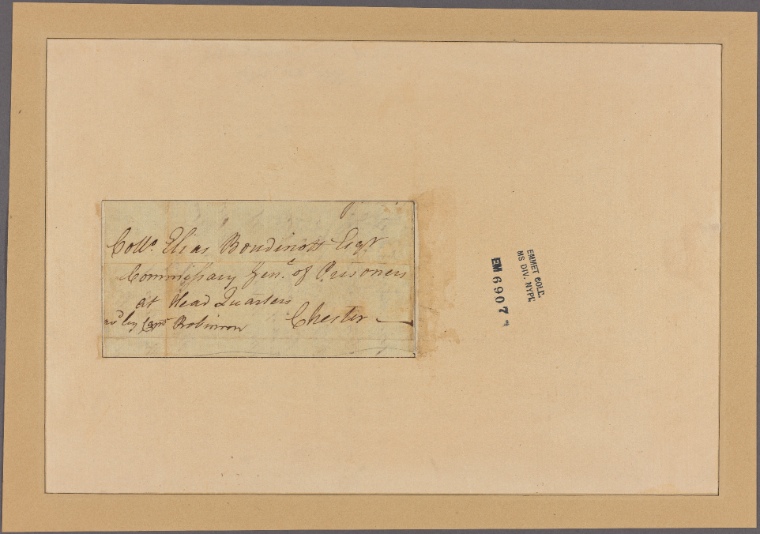 Collo. Elias Boudinott Esqr
Commissary Gen. of Prisoners
at Head Quarters
by Capt Robinson Chester
EMMET COLL.
MS DIV. NYPL
EM 9907